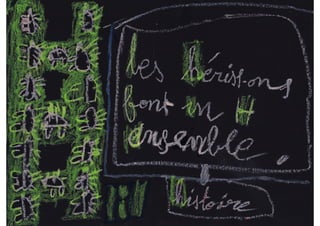 les hérissons
font un H
ensemble.
histoire